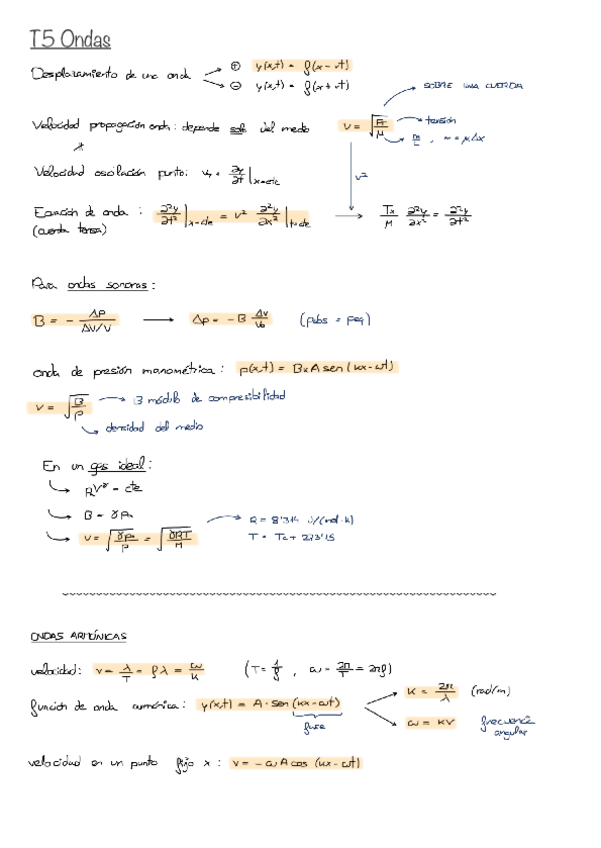 T5 Ondas
Desplazamiento de una onda → ⊕ y(x,t) = f(x - vt)
→ ⊖ y(x,t) = f(x + vt)
SOBRE UNA CUERDA
Velocidad propagación onda: depende solo del medio v = √(FT/μ) → tensión
m/L , m = μΔx
≠
Velocidad oscilación punto: vy = ∂y/∂t |x=cte
v²
Ecuación de onda : ∂²y/∂t² |x=cte = v² ∂²y/∂x² |t=cte → Tx/μ ∂²y/∂x² = ∂²y/∂t²
(cuerda tensa)
Para ondas sonoras:
B = - Δp/ΔV/V → Δp = - B ΔV/V₀ (pabs = peq)
onda de presión manométrica : p(x,t) = BκA sen (κx - ωt)
v = √(B/ρ) → B módulo de compresibilidad
densidad del medio
En un gas ideal:
↳ PV^γ = cte
↳ B = γp₀
↳ v = √(γp₀/ρ) = √(γRT/M) → R = 8'314 J/(mol·K)
T = Tc + 273'15
ONDAS ARMÓNICAS
velocidad: v = λ/T = f λ = ω/κ (T = 1/f , ω = 2π/T = 2πf)
función de onda armónica : y(x,t) = A · sen (κx - ωt) → κ = 2π/λ (rad/m)
fase
→ ω = κv frecuencia angular
velocidad en un punto fijo x : v = - ω A cos (κx - ωt)